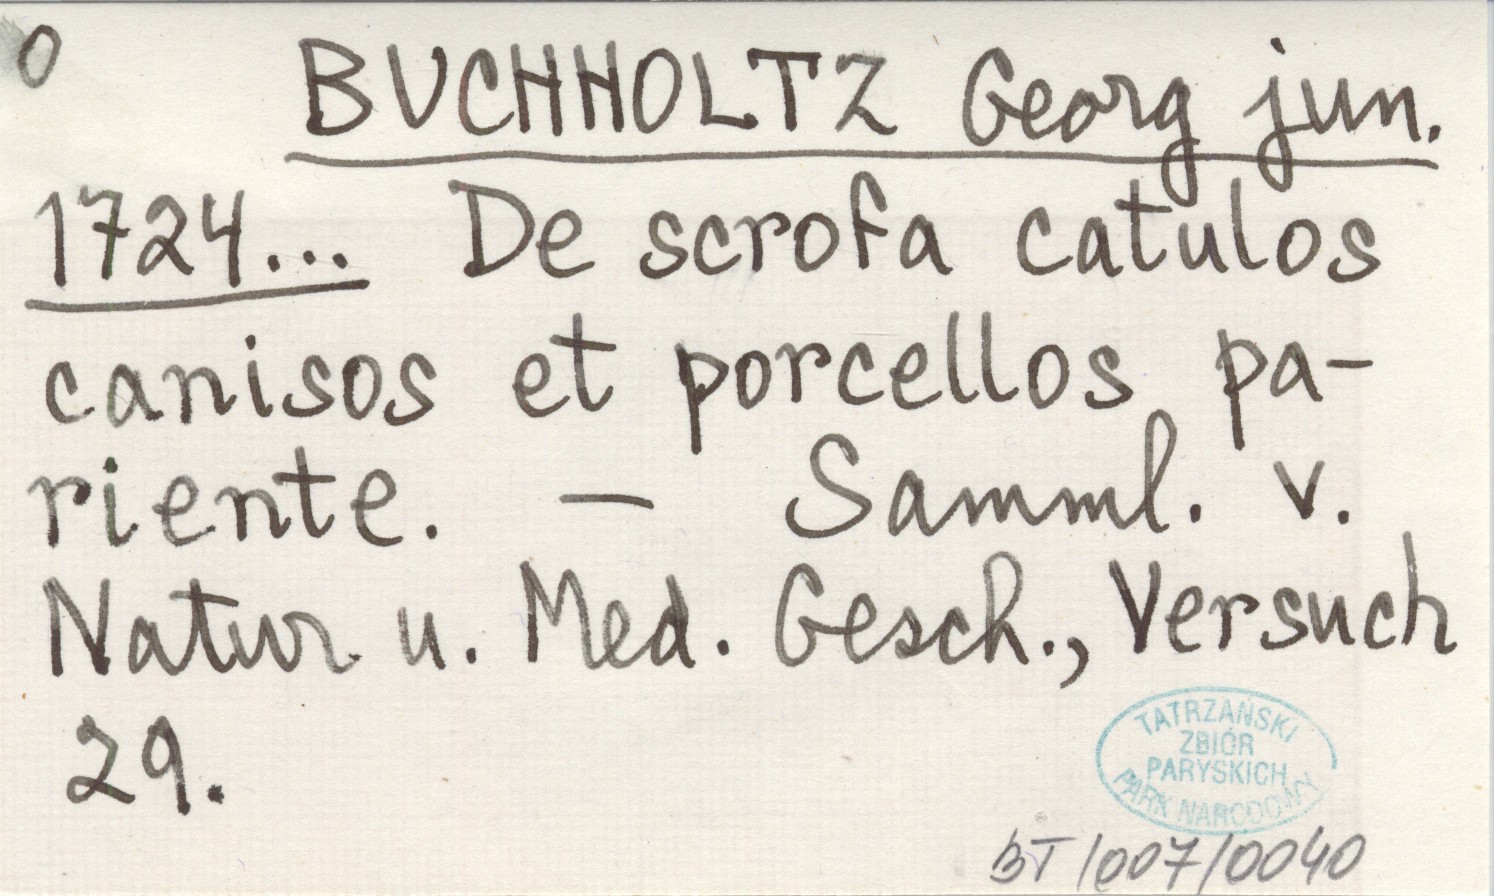 0
BUCHHOLTZ Georg jun.
1724... De scrofa catulos
canisos et porcellos pa-
riente. — Samml. v.
Natur u. Med. Gesch., Versuch
29.
TATRZAŃSKI
ZBIÓR
PARYSKICH
PARK NARODOWY
BT/007/0040